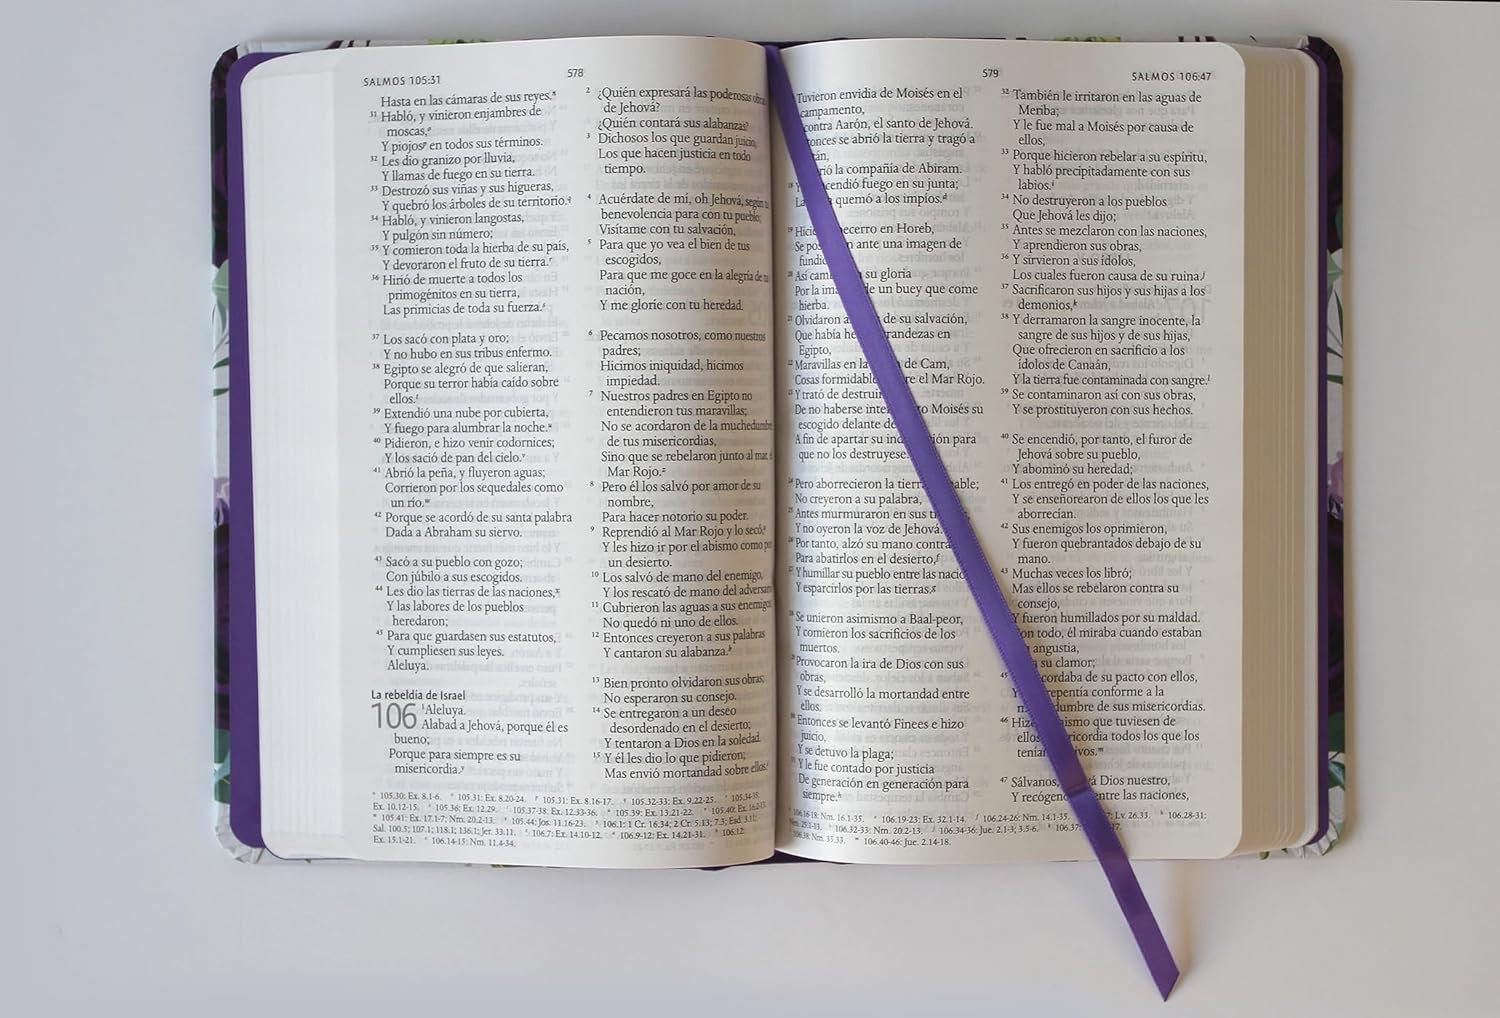 SALMOS 105:31
578
Hasta en las cámaras de sus reyes.ⁿ
31 Habló, y vinieron enjambres de
moscas,º
Y piojosᵖ en todos sus términos.
32 Les dio granizo por lluvia,
Y llamas de fuego en su tierra.
33 Destrozó sus viñas y sus higueras,
Y quebró los árboles de su territorio.q
34 Habló, y vinieron langostas,
Y pulgón sin número;
35 Y comieron toda la hierba de su país,
Y devoraron el fruto de su tierra.ʳ
36 Hirió de muerte a todos los
primogénitos en su tierra,
Las primicias de toda su fuerza.ˢ
37 Los sacó con plata y oro;
Y no hubo en sus tribus enfermo.
38 Egipto se alegró de que salieran,
Porque su terror había caído sobre
ellos.ᵗ
39 Extendió una nube por cubierta,
Y fuego para alumbrar la noche.ᵘ
40 Pidieron, e hizo venir codornices;
Y los sació de pan del cielo.ᵛ
41 Abrió la peña, y fluyeron aguas;
Corrieron por los sequedales como
un río.ʷ
42 Porque se acordó de su santa palabra
Dada a Abraham su siervo.
43 Sacó a su pueblo con gozo;
Con júbilo a sus escogidos.
44 Les dio las tierras de las naciones,ˣ
Y las labores de los pueblos
heredaron;
45 Para que guardasen sus estatutos,
Y cumpliesen sus leyes.
Aleluya.
La rebeldía de Israel
106 ¹Aleluya.
Alabad a Jehová, porque él es
bueno;
Porque para siempre es su
misericordia.ʸ
2 ¿Quién expresará las poderosas obras
de Jehová?
¿Quién contará sus alabanzas?
3 Dichosos los que guardan juicio,
Los que hacen justicia en todo
tiempo.
4 Acuérdate de mí, oh Jehová, según tu
benevolencia para con tu pueblo;
Visítame con tu salvación,
5 Para que yo vea el bien de tus
escogidos,
Para que me goce en la alegría de tu
nación,
Y me gloríe con tu heredad.
6 Pecamos nosotros, como nuestros
padres;
Hicimos iniquidad, hicimos
impiedad.
7 Nuestros padres en Egipto no
entendieron tus maravillas;
No se acordaron de la muchedumbre
de tus misericordias,
Sino que se rebelaron junto al mar, el
Mar Rojo.ᶻ
8 Pero él los salvó por amor de su
nombre,
Para hacer notorio su poder.
9 Reprendió al Mar Rojo y lo secó,ª
Y les hizo ir por el abismo como por
un desierto.
10 Los salvó de mano del enemigo,
Y los rescató de mano del adversario.
11 Cubrieron las aguas a sus enemigos;
No quedó ni uno de ellos.
12 Entonces creyeron a sus palabras
Y cantaron su alabanza.ᵇ
13 Bien pronto olvidaron sus obras;
No esperaron su consejo.
14 Se entregaron a un deseo
desordenado en el desierto;
Y tentaron a Dios en la soledad.
15 Y él les dio lo que pidieron;
Mas envió mortandad sobre ellos.ᶜ
ⁿ 105.30: Ex. 8.1-6. º 105.31: Ex. 8.20-24. ᵖ 105.31: Ex. 8.16-17. q 105.32-33: Ex. 9.22-25. ʳ 105.34-35:
Ex. 10.12-15. ˢ 105.36: Ex. 12.29. ᵗ 105.37-38: Ex. 12.33-36. ᵘ 105.39: Ex. 13.21-22. ᵛ 105.40: Ex. 16.2-15.
ʷ 105.41: Ex. 17.1-7; Nm. 20.2-13. ˣ 105.44: Jos. 11.16-23. ʸ 106.1: 1 Cr. 16.34; 2 Cr. 5.13; 7.3; Esd. 3.11;
Sal. 100.5; 107.1; 118.1; 136.1; Jer. 33.11. ᶻ 106.7: Ex. 14.10-12. ª 106.9-12: Ex. 14.21-31. ᵇ 106.12:
Ex. 15.1-21. ᶜ 106.14-15: Nm. 11.4-34.
579
SALMOS 106:47
Tuvieron envidia de Moisés en el
campamento,
contra Aarón, el santo de Jehová.
se abrió la tierra y tragó a
la compañía de Abiram.
fuego en su junta;
quemó a los impíos.ᵈ
19 becerro en Horeb,
Se ante una imagen de
20 Así su gloria
Por la de un buey que come
hierba.
21 Olvidaron de su salvación,
Que había grandezas en
Egipto,
22 Maravillas en la de Cam,
Cosas formidables el Mar Rojo.
23 Y trató de
De no haberse Moisés su
escogido delante de
A fin de apartar su para
que no los destruyese.
24 Pero aborrecieron la
No creyeron a su palabra,
25 Antes murmuraron en sus
Y no oyeron la voz de Jehová.
26 Por tanto, alzó su mano contra
Para abatirlos en el desierto,ᶠ
27 Y humillar su pueblo entre las
Y esparcirlos por las tierras.ᵍ
28 Se unieron asimismo a Baal-peor,
Y comieron los sacrificios de los
muertos.
29 Provocaron la ira de Dios con sus
obras,
Y se desarrolló la mortandad entre
ellos.
30 Entonces se levantó Finees e hizo
juicio,
Y se detuvo la plaga;
31 Y le fue contado por justicia
De generación en generación para
siempre.ʰ
32 También le irritaron en las aguas de
Meriba;
Y le fue mal a Moisés por causa de
ellos,
33 Porque hicieron rebelar a su espíritu,
Y habló precipitadamente con sus
labios.ⁱ
34 No destruyeron a los pueblos
Que Jehová les dijo;
35 Antes se mezclaron con las naciones,
Y aprendieron sus obras,
36 Y sirvieron a sus ídolos,
Los cuales fueron causa de su ruina.ʲ
37 Sacrificaron sus hijos y sus hijas a los
demonios,ᵏ
38 Y derramaron la sangre inocente, la
sangre de sus hijos y de sus hijas,
Que ofrecieron en sacrificio a los
ídolos de Canaán,
Y la tierra fue contaminada con sangre.ˡ
39 Se contaminaron así con sus obras,
Y se prostituyeron con sus hechos.
40 Se encendió, por tanto, el furor de
Jehová sobre su pueblo,
Y abominó su heredad;
41 Los entregó en poder de las naciones,
Y se enseñorearon de ellos los que les
aborrecían.
42 Sus enemigos los oprimieron,
Y fueron quebrantados debajo de su
mano.
43 Muchas veces los libró;
Mas ellos se rebelaron contra su
consejo,
Y fueron humillados por su maldad.
Con todo, él miraba cuando estaban
angustia,
su clamor;
45 acordaba de su pacto con ellos,
arrepentía conforme a la
muchedumbre de sus misericordias.
46 Hizo que tuviesen de
ellos misericordia todos los que los
47 Sálvanos, Dios nuestro,
Y recógenos entre las naciones,
106.16-18: Nm. 16.1-35. 106.19-23: Ex. 32.1-14. 106.24-26: Nm. 14.1-35. Lv. 26.33. ʰ 106.28-31:
Nm. 25.1-13. 106.32-33: Nm. 20.2-13. 106.34-36: Jue. 2.1-3; 3.5-6.
Nm. 35.33. 106.40-46: Jue. 2.14-18.